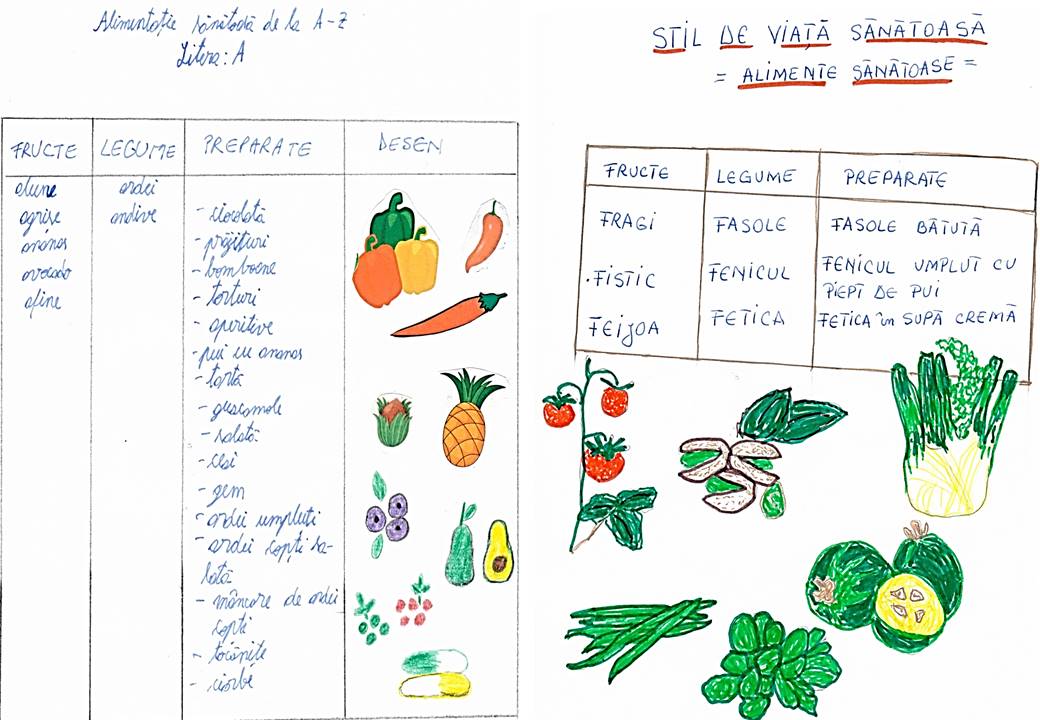 Alimentație sănătoasă de la A-Z
Litera: A
FRUCTE LEGUME PREPARATE DESEN
alune
agrișe
ananas
avocado
afine
ardei
andive
- ciocolată
- prăjituri
- bomboane
- torturi
- aperitive
- pui cu ananas
- tartă
- guacamole
- salată
- ceai
- gem
- ardei umpluți
- ardei copți sa-
lată
- mâncare de ardei
copți
- tocănițe
- ciorbe
STIL DE VIAȚĂ SĂNĂTOASĂ
= ALIMENTE SĂNĂTOASE =
FRUCTE LEGUME PREPARATE
FRAGI FASOLE FASOLE BĂTUTĂ
FISTIC FENICUL FENICUL UMPLUT CU
PIEPT DE PUI
FEIJOA FETICA FETICA în SUPĂ CREMĂ